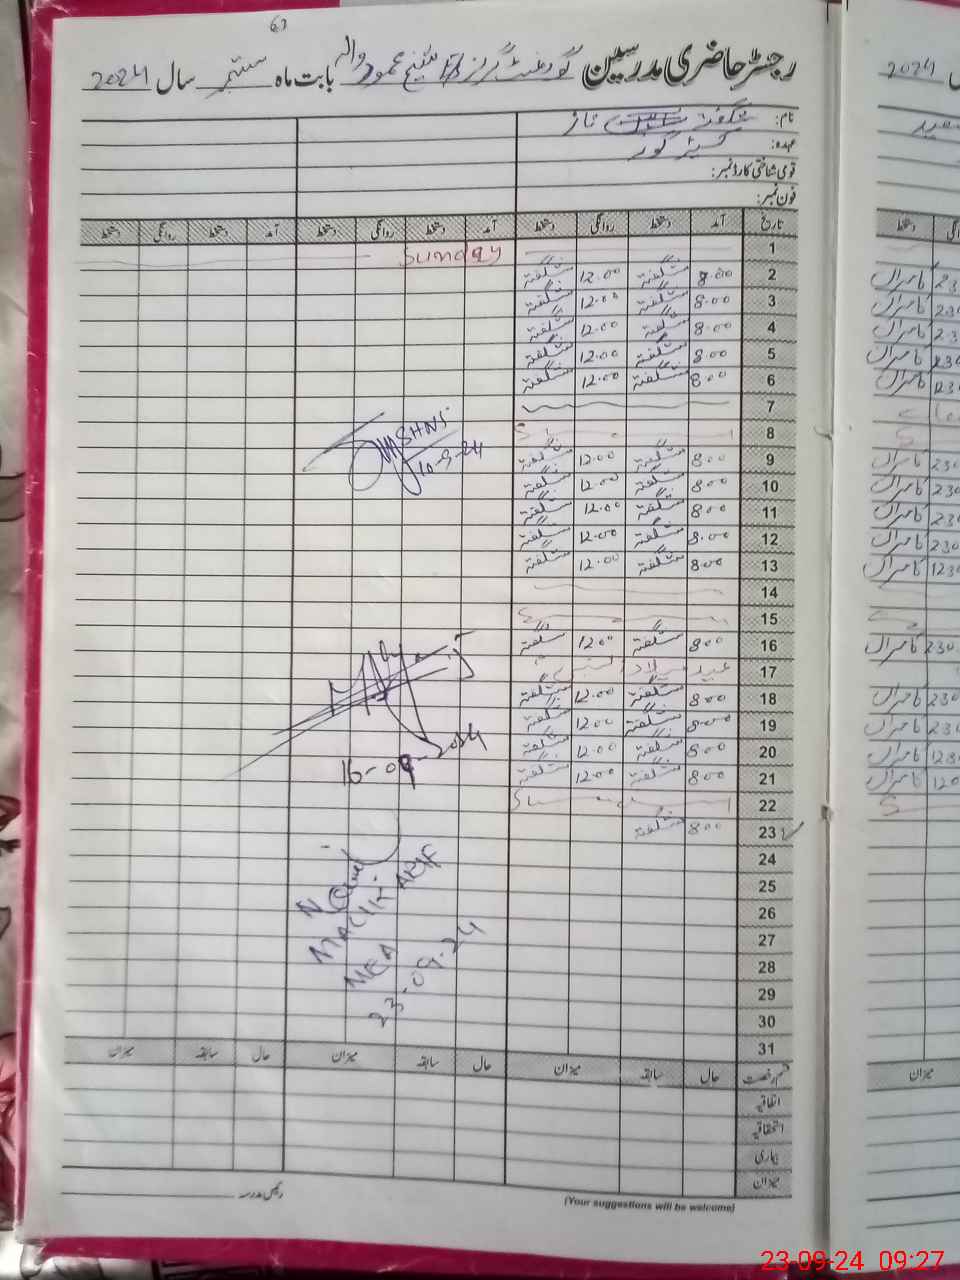 63
رجسٹر حاضری مدرسین گورنمنٹ گرلز بابت ماہ ستمبر سال 2024
نام: شگفتہ ناز
عہدہ: کیئر گور
قومی شناختی کارڈ نمبر:
فون نمبر:
تاریخ آمد دستخط روانگی دستخط آمد دستخط روانگی دستخط آمد دستخط روانگی دستخط
1 Sunday
2 8.00 شگفتہ 12.00 شگفتہ
3 8.00 شگفتہ 12.00 شگفتہ
4 8.00 شگفتہ 12.00 شگفتہ
5 8.00 شگفتہ 12.00 شگفتہ
6 8.00 شگفتہ 12.00 شگفتہ
7
8 S
9 8.00 شگفتہ 12.00 شگفتہ
10 8.00 شگفتہ 12.00 شگفتہ
11 8.00 شگفتہ 12.00 شگفتہ
12 8.00 شگفتہ 12.00 شگفتہ
13 8.00 شگفتہ 12.00 شگفتہ
14
15 S
16 8.00 شگفتہ 12.00 شگفتہ
17 عید میلاد النبی
18 8.00 شگفتہ 12.00 شگفتہ
19 8.00 شگفتہ 12.00 شگفتہ
20 8.00 شگفتہ 12.00 شگفتہ
21 8.00 شگفتہ 12.00 شگفتہ
22 S
23 8.00 شگفتہ
24
25
26
27
28
29
30
31
10-9-24
16-09-2024
MALIK ARIF
MEA
23-09-24
قسم رخصت حال سابقہ میزان حال سابقہ میزان حال سابقہ میزان
اتفاقیہ
استحقاقیہ
بیماری
میزان
رئیس مدرسہ
(Your suggestions will be welcome)
2024
کامران 230
کامران 230
کامران 230
کامران 1230
کامران 1230
S
کامران 230
کامران 230
کامران 230
کامران 230
کامران 1230
کامران 230
کامران 230
کامران 230
کامران 1230
کامران 120
S
میزان
23-09-24 09:27